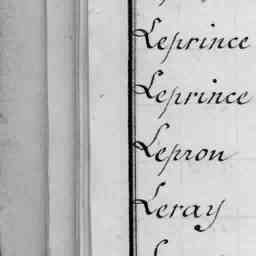 Leprince
Leprince
Lepron
Leray